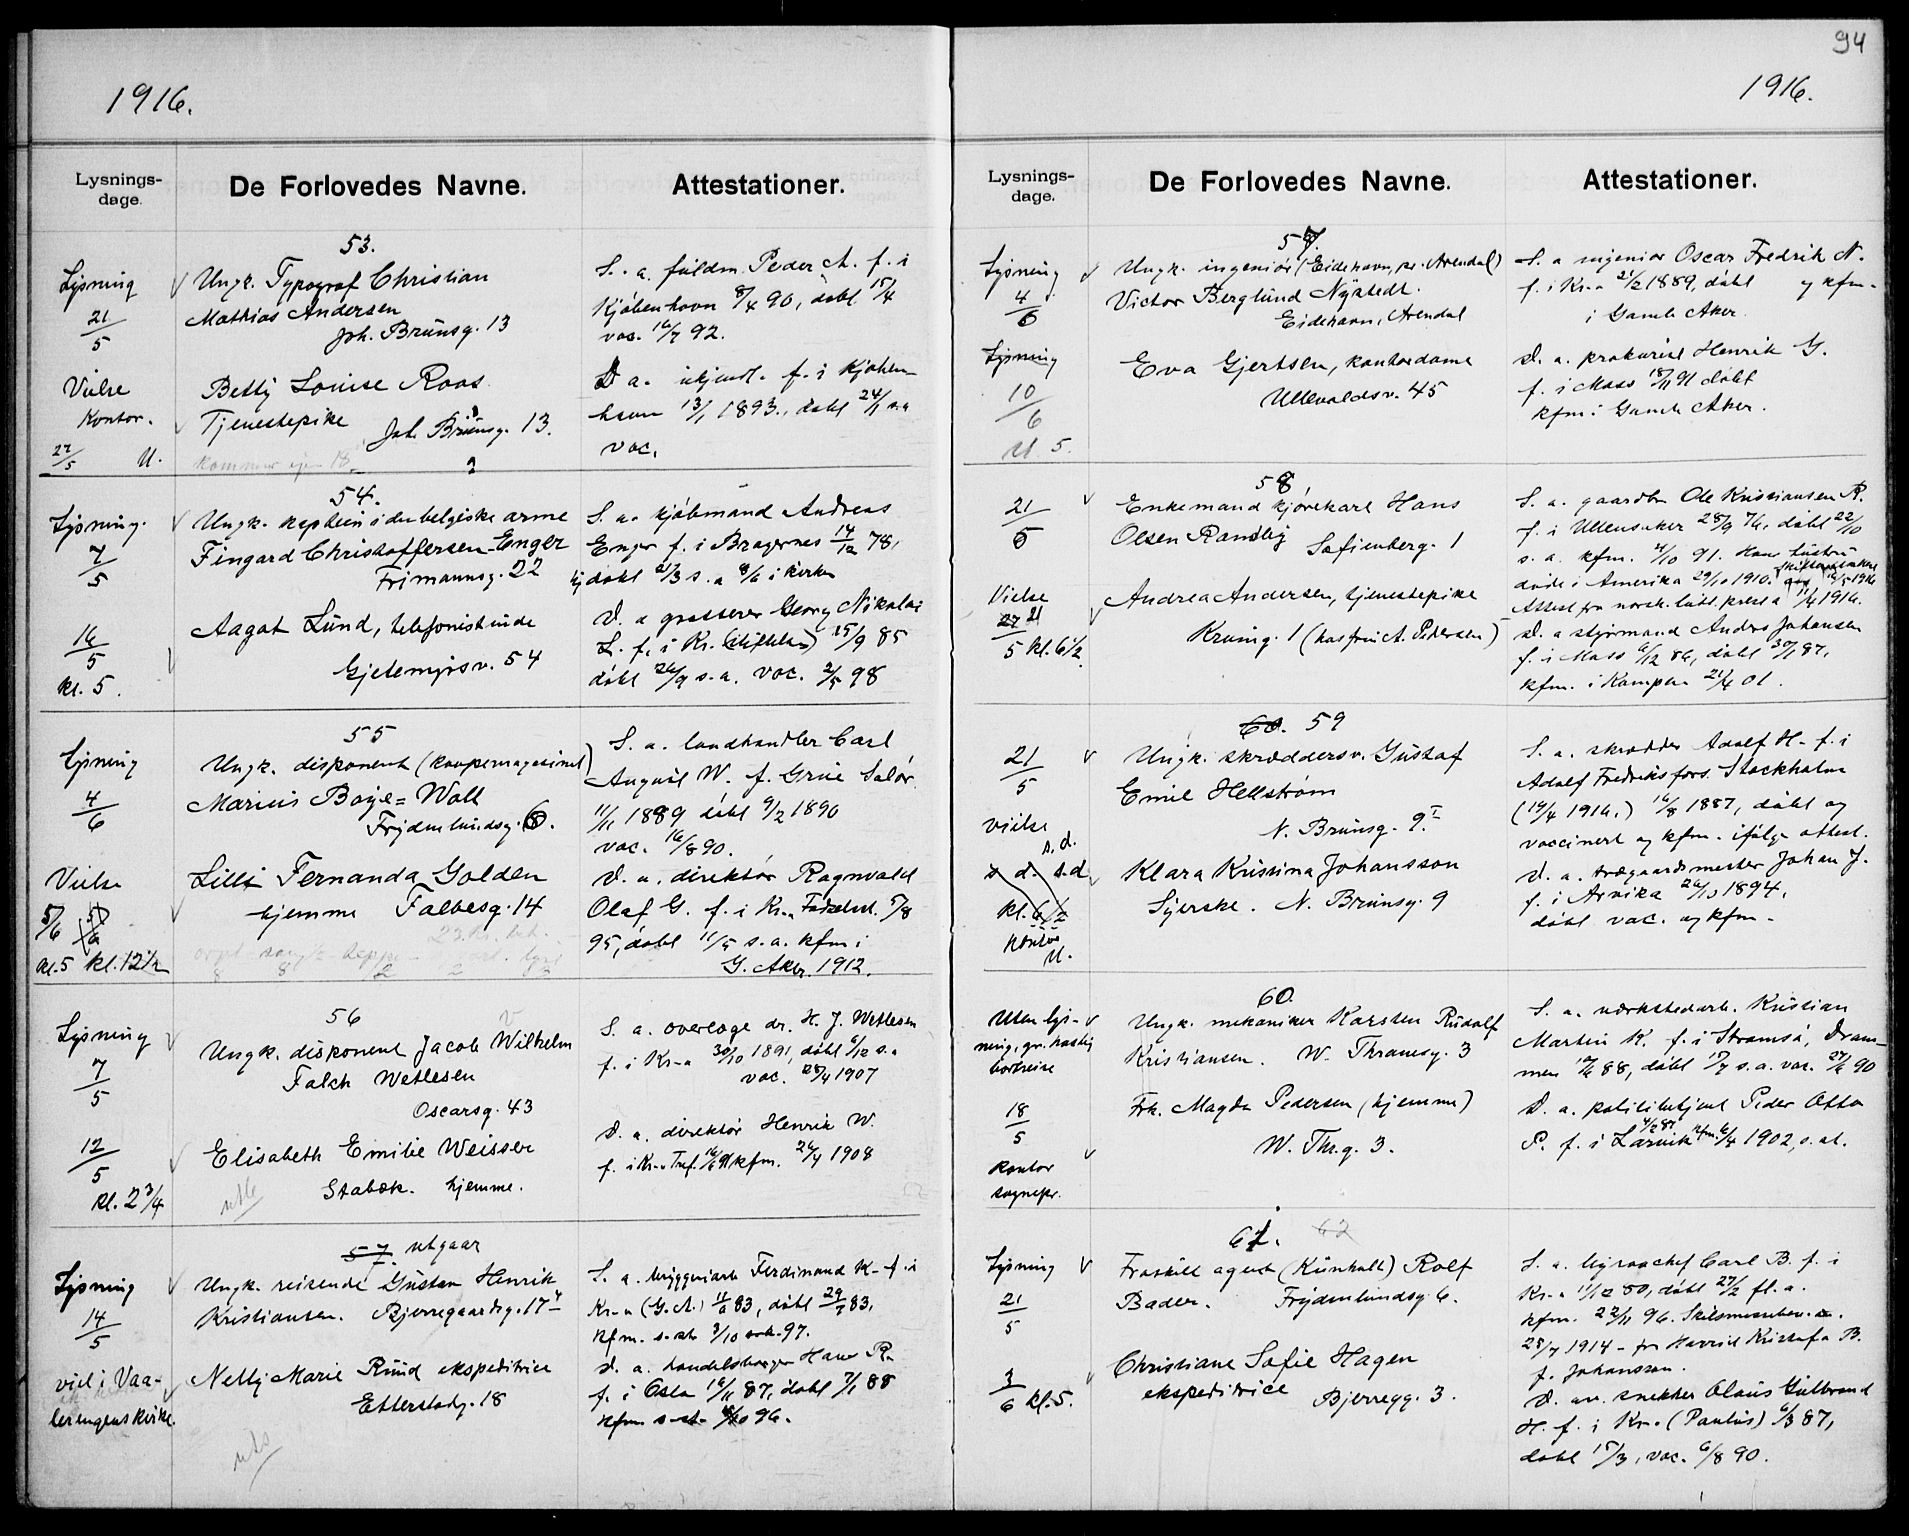 94
1916.
Lysnings-
dage.
De Forlovedes Navne.
Attestationer.
53.
Lysning
21/5
Vielse
Kontor.
27/5 U.
Ungk. Typograf Christian
Mathias Andersen
Joh. Brunsg. 13
Betty Louise Roos
Tjenestepike Joh. Brunsg. 13.
S. a. fuldm. Peder A. f. i
Kjøbenhavn 8/4 90, døbt 15/4
vac. 16/7 92.
D a. f. i Kjøben-
havn 13/1 1893, døbt 24/1 s.a
vac.
54.
Lysning.
7/5
16/5
kl. 5.
Ungk. kaptein i den belgiske arme
Fingard Christoffersen-Enger
Frimannsg. 22
Aagot Lund, telefonistinde
Gjetemyrsv. 54
S. a. kjøbmand Andreas
Enger f. i Bragernes 14/12 78,
døbt 21/3 s. a 8/6 i kirken
D. a grosserer Georg Nikolai
L. f. i Kr. 15/9 85
døbt 26/9 s. a. vac. 2/5 98
55
Lysning
4/6
Vielse
5/6
kl. 5 kl. 12 1/2
Ungk. disponent (kaupemagasinet)
Marius Boye=Woll
Frydenlundsg. 6.
Lilli Fernanda Golden
hjemme Falbesg. 14
S. a. landhandler Carl
August W. f. Grue Solør
11/11 1889 døbt 9/2 1890
vac. 16/8 90.
D. a. direktør Ragnvald
Olaf G. f. i Kr.a 5/8
95, døbt 11/5 s. a. kfm i
G. Aker. 1912.
56
Lysning
7/5
12/5
kl. 2 3/4
Ungk. disponent Jacob Wilhelm
Falch Wetlesen
Oscarsg. 43
Elisabeth Emilie Weisser
Stabæk. hjemme.
S. a. overlæge dr. H. J. Wetlesen
f. i Kr-a 30/10 1891, døbt 6/12 s. a
vac. 28/4 1907
D. a. direktør Henrik W.
f. i Kr.a kfm. 26/4 1908
57. utgaar
Lysning
14/5
viel i Vaa-
lerengens kirke.
Ungk. reisende Gustav Henrik
Kristiansen. Bjerregaardsg. 17
Nelly Marie Ruud ekspeditrice
Etterstadg. 18
S. a. bryggeriarb Ferdinand K- f. i
Kr.a (G. A.) 83, døbt 83,
kfm. s. st. 3/10 97.
D. a. handelsborger Hans R.
f. i Oslo 16/11 87, døbt 7/1 88
kfm s. st. 96.
1916.
Lysnings-
dage.
De Forlovedes Navne.
Attestationer.
57.
Lysning
4/6
Lysning
10/6
U. 5.
Ungk. ingeniør (Eidehavn, pr. Arendal)
Victor Berglund Nystedt.
Eidehavn, Arendal
Eva Gjertsen, kontordame
Ullevaldsv. 45
S. a ingeniør Oscar Fredrik N.
f. i Kr.a 21/2 1889, døbt og kfm.
i Gamle Aker.
D. a. prokurist Henrik G.
f. i Moss 18/11 91 døbt
kfm i Gamle Aker.
58.
21/5
Vielse
27/5 kl. 6 1/2.
Enkemand kjørekarl Hans
Olsen Randby Sofienberg. 1
Andrea Andersen, tjenestepike
Kruseg. 1 (hos fru A. Pedersen)
S. a. gaardbr. Ole Kristiansen R.
f. i Ullensaker 28/9 76, døbt 22/10
s. a. kfm. 4/10 91. Hans hustru
døde i Amerika 29/10 1910. 1916
Attest fra norsk. luth. prest a 11/4 1916.
D. a styrmand Anders Johansen
f. i Moss 6/12 86, døbt 30/1 87,
kfm. i Kampen 21/4 01.
60. 59
21/5
vielse
s. d.
kl. 6 1/2
kontor
U.
Ungk. skræddersv. Gustaf
Emil Hellstrøm
N. Brunsg. 9 I
Klara Kristina Johansson
Syerske. N. Brunsg. 9
S. a. skrædder Adolf H- f. i
Adolf Fredriks fors. Stockholm
(19/4 1916.) 16/8 1887, døbt og
vaccinert og kfm. ifølge attest.
D. a. trægaardsmester Johan J.
f. i Arvika 26/10 1894,
døbt vac. og kfm.
60.
Uten lys-
ning, gr. hastig
bortreise
18/5
kontor
sognepr.
Ungk. mekaniker Karsten Rudolf
Kristiansen. W. Thranesg. 3
Frk. Magda Pedersen (hjemme)
W. Thr.g. 3.
S. a. verkstedarb. Kristian
Martin K. f. i Strømsø, Dram-
men 88, døbt 17/7 s. a. vac. 90
D. a. politibetjent Peder Otto
P. f. i Larvik kfm. 6/4 1902, s. st.
61. 62
Lysning
21/5
3/6 kl. 5.
Fraskilt agent (Kunholt) Rolf
Bader. Frydenlundsg 6.
Christiane Sofie Hagen
ekspeditrice Bjerregg. 3.
S. a. Carl B. f. i
Kr.a 11/12 80, døbt 27/2 fl. a.
kfm. 22/11 96. Skilsmissebev. a.
28/7 1914 - fra Harriet Kristofa B.
f. Johansson.
D. av. snekker Olaus Gulbrand
H. f. i Kr.a (Paulus) 6/3 87,
døbt 15/3, vac. 6/8 90.